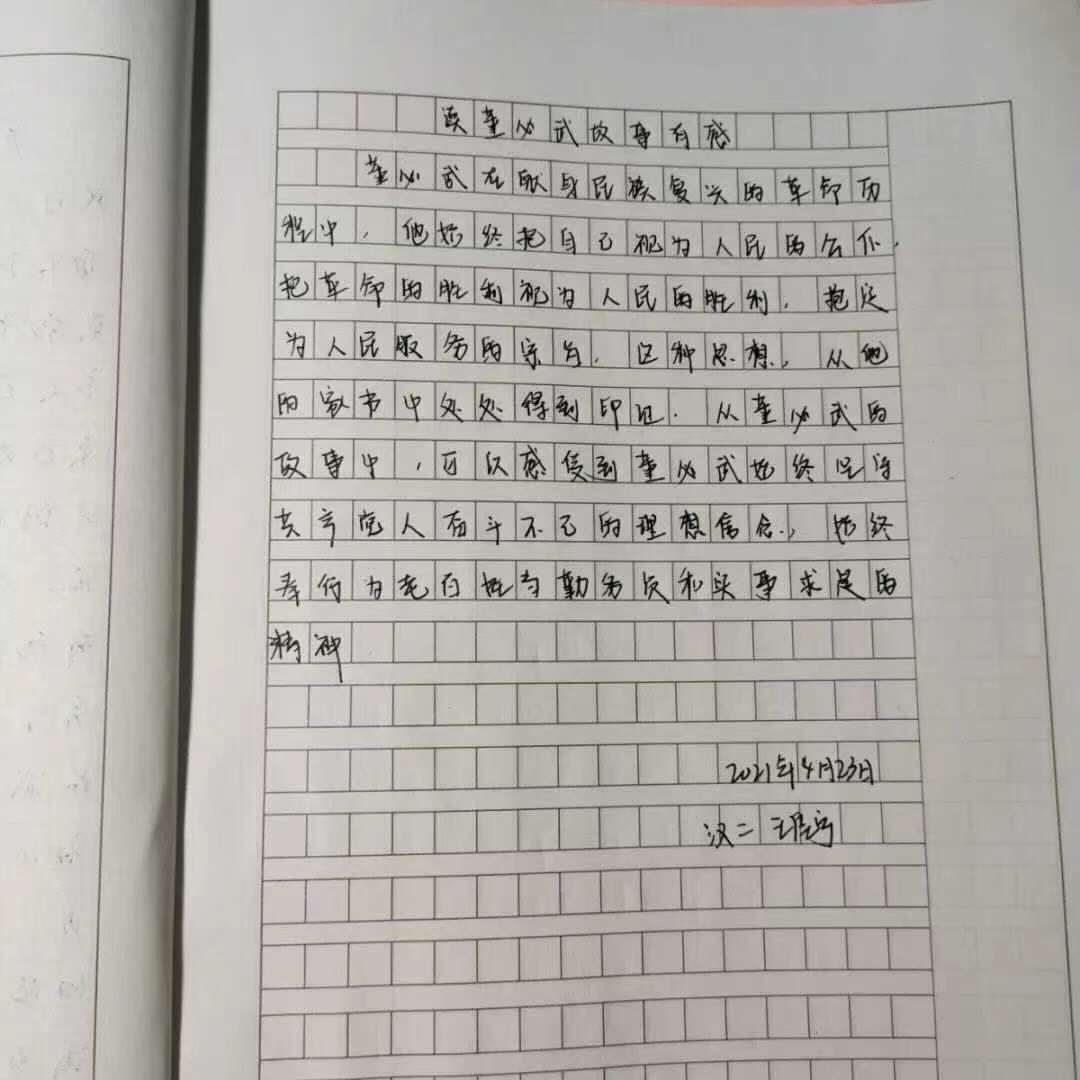 读董必武故事有感
董必武在献身民族复兴的革命历
程中，他始终把自己视为人民的公仆，
把革命的胜利视为人民的胜利，抱定
为人民服务的宗旨，这种思想，从他
的家书中处处得到印记．从董必武的
故事中，可以感受到董必武始终坚守
共产党人奋斗不已的理想信念，始终
奉行为老百姓当勤务员和实事求是的
精神
2021年4月23日
汉二